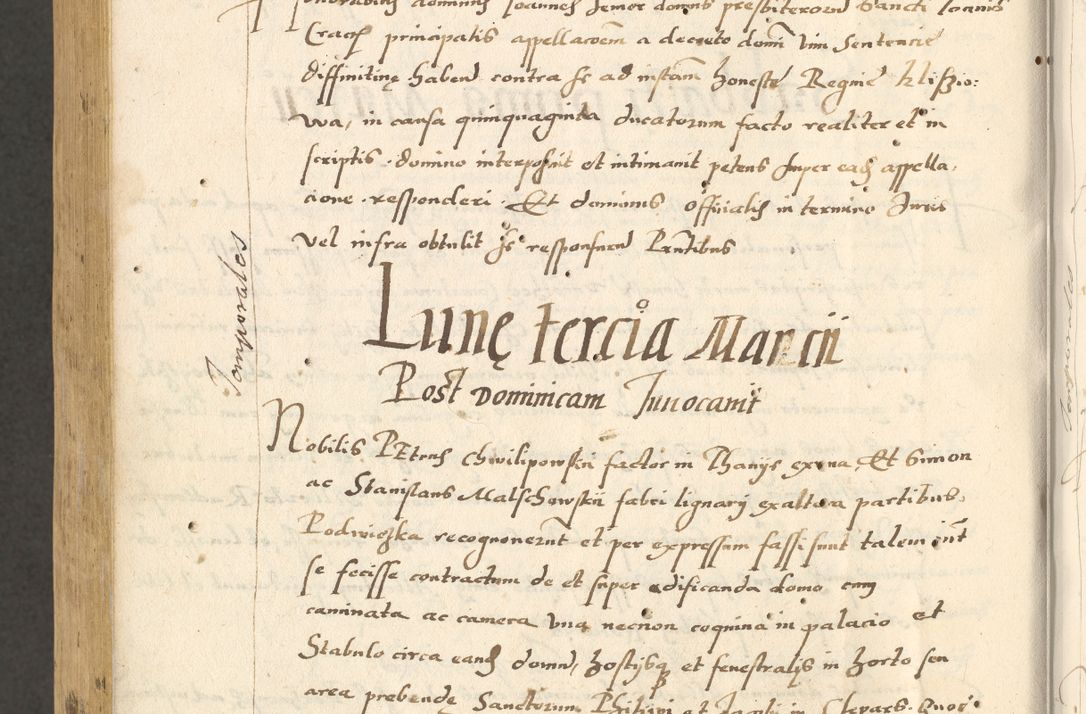 dominus Joannes Jemer domus presbiterorum Sancti Joannis
Crac principalis appellacoem a decreto domi vim Sentencie
diffinitivę haben contra se ad instam honeste Regine Klisszio:
wa, in causa quinquaginta ducatorum facto realiter et in
scriptis domino interposuit et intimauit petens super ead appella,
cione responderi. Et dominus officialis in termino Juris
vel infra obtulit se responsurum Pntibus
Temporales
Lunę tercia Marcii
Post Dominicam Inuocauit
Nobilis PEtrus Chwilipowskii factor in Thanijs ex vna, Et Simon
ac Stanislaus Malschowskii fabri lignarij ex altera partibus,
Podwiozka recognouerunt et per expressum fassi sunt talem int
se fecisse contractum de et super edificanda domo cum
caminata ac camera vna necnon coquina in palacio et
Stabulo circa eand domum, hostijsq et fenestralis in horto seu
area prebendę Sanctorum Philippi et Jacobi in Clepars. Quor